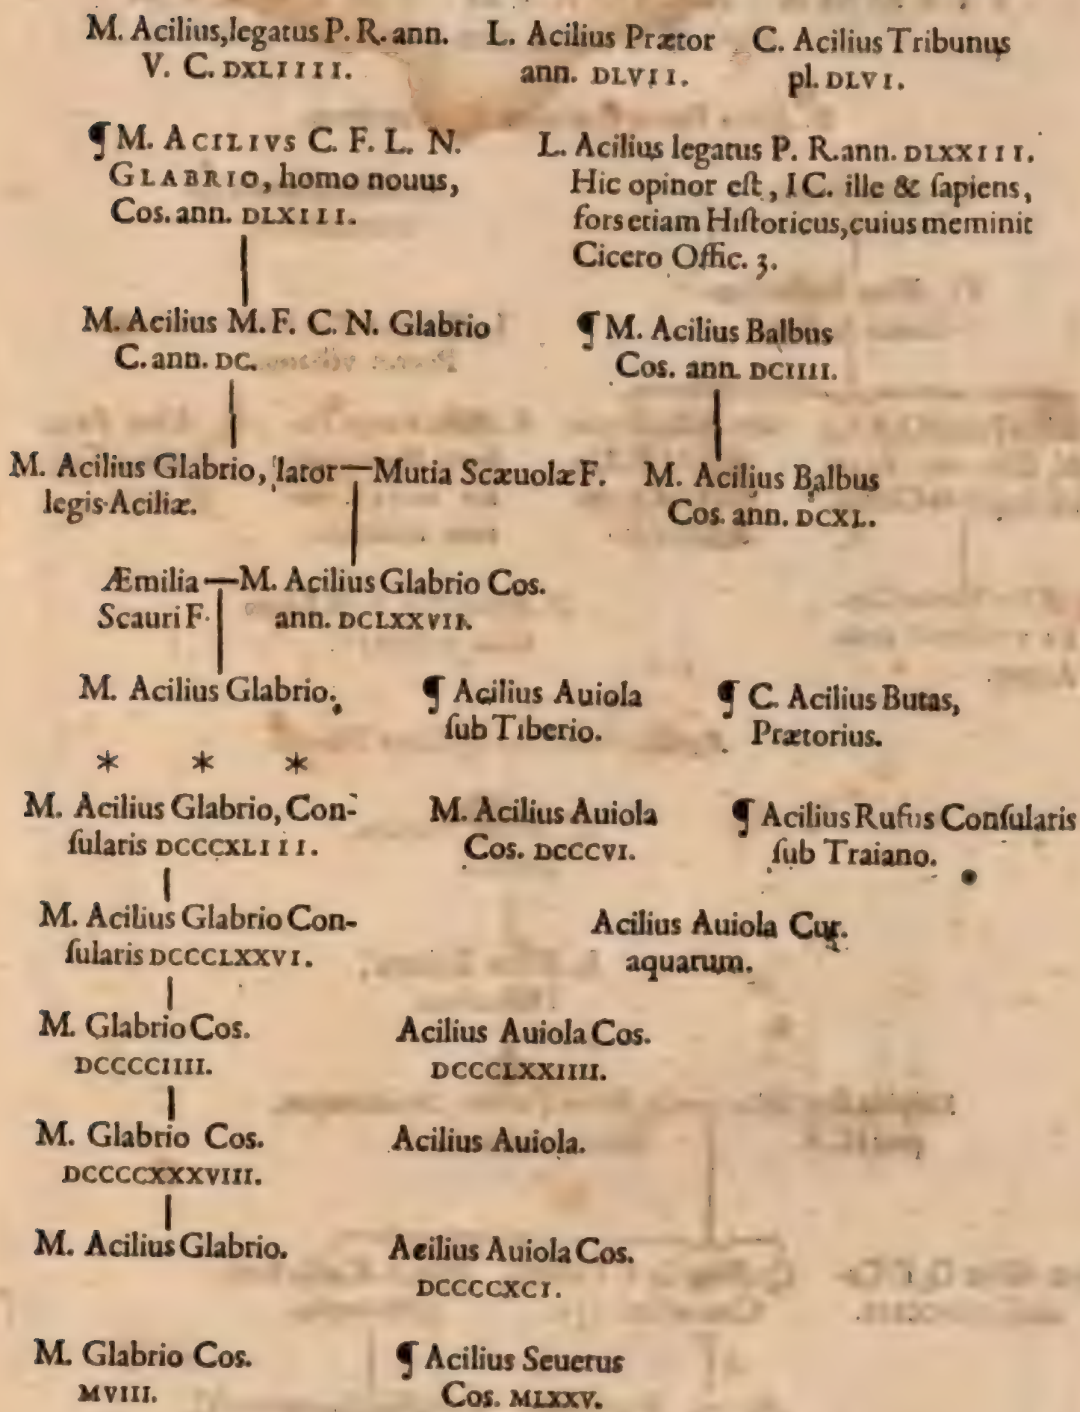 M. Acilius, legatus P. R. ann.
V. C. DXLIIII.
L. Acilius Prætor
ann. DLVII.
C. Acilius Tribunus
pl. DLVI.
¶ M. ACILIVS C. F. L. N.
GLABRIO, homo nouus,
Cos. ann. DLXIII.
L. Acilius legatus P. R. ann. DLXXIII.
Hic opinor eſt, IC. ille & ſapiens,
fors etiam Hiſtoricus, cuius meminit
Cicero Offic. 3.
M. Acilius M. F. C. N. Glabrio
C. ann. DC.
¶ M. Acilius Balbus
Cos. ann. DCIIII.
M. Acilius Glabrio, lator — Mutia Scæuolæ F.
legis Aciliæ.
M. Acilius Balbus
Cos. ann. DCXL.
Æmilia — M. Acilius Glabrio Cos.
Scauri F. ann. DCLXXVII.
M. Acilius Glabrio.
¶ Acilius Auiola
ſub Tiberio.
¶ C. Acilius Butas,
Prætorius.
* * *
M. Acilius Glabrio, Con-
ſularis DCCCXLIII.
M. Acilius Auiola
Cos. DCCCVI.
¶ Acilius Rufus Conſularis
ſub Traiano.
M. Acilius Glabrio Con-
ſularis DCCCLXXVI.
Acilius Auiola Cur.
aquarum.
M. Glabrio Cos.
DCCCCIIII.
Acilius Auiola Cos.
DCCCLXXIIII.
M. Glabrio Cos.
DCCCCXXXVIII.
Acilius Auiola.
M. Acilius Glabrio.
Acilius Auiola Cos.
DCCCCXCI.
M. Glabrio Cos.
MVIII.
¶ Acilius Seuerus
Cos. MLXXV.